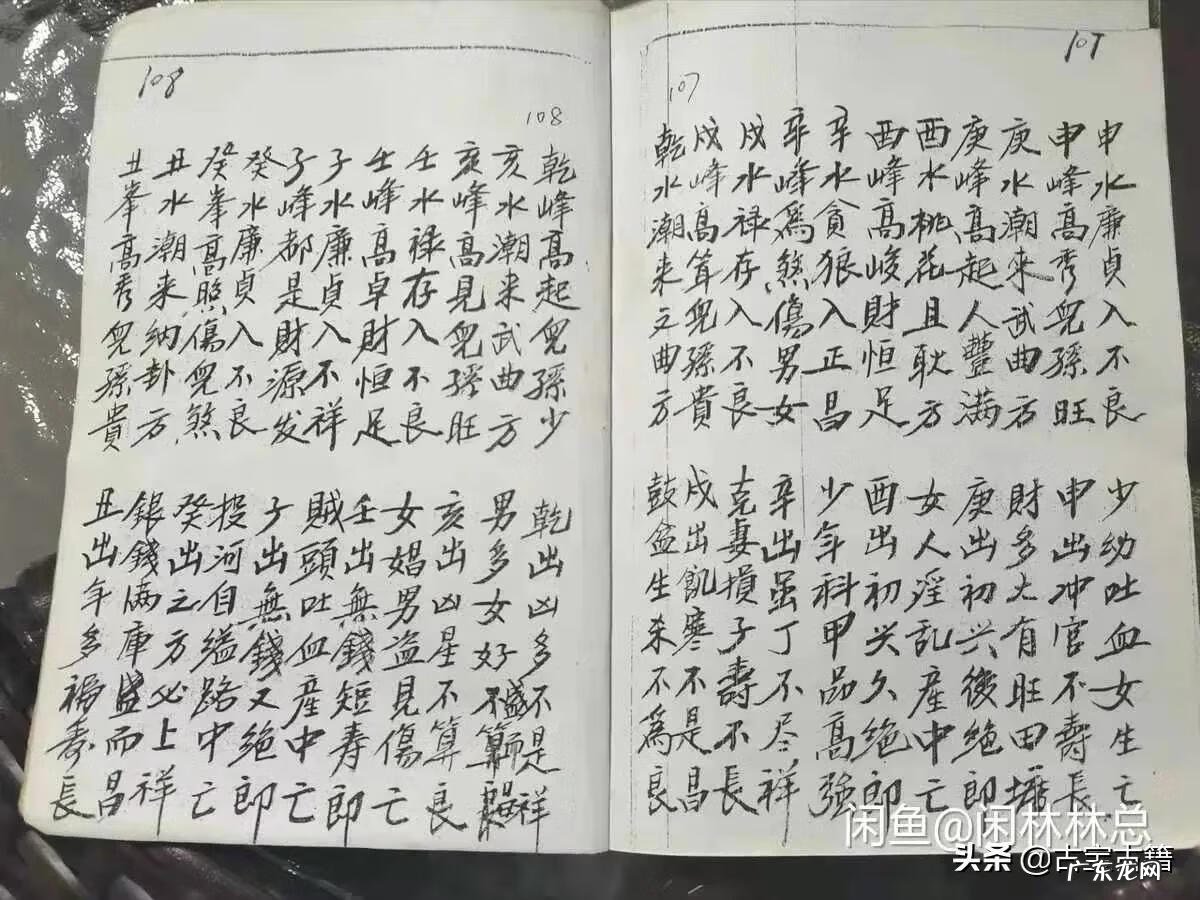 107
107
申水廉貞入不良
申峰高秀兒孫旺
庚水潮来武曲方
庚峰高起人豐满
酉水桃花且耿方
酉峰高峻財恒足
辛水貪狼入正昌
辛峰為煞傷男女
戌水禄存入不良
戌峰高耸兒孫貴
乾水潮来文曲方
少幼吐血女生亡
申出冲官不壽長
財多大有旺田塘
庚出初兴後絶郎
女人淫乱産中亡
酉出初兴久絶郎
少年科甲品高强
辛出虽丁不尽祥
克妻損子壽不長
戌出飢寒不是昌
鼓盆生杀不為良
108
108
乾峰高起兒孫少
亥水潮来武曲方
亥峰高見兒孫旺
壬水禄存入不良
壬峰高卓財恒足
子水廉貞入不祥
子峰都是財源发
癸水廉貞入不良
癸峯高照傷兒煞
丑水潮来納卦方
丑峯高秀兒孫貴
乾出凶多不是祥
男多女好
亥出凶星不算良
女娼男盗見傷亡
壬出無錢短寿郎
賊頭吐血産中亡
子出無錢又絶郎
投河自缢路中亡
癸出之方必上祥
銀錢满庫盛而昌
丑出年多福寿長
闲鱼@闲林林总
头条@古字古籍
广东龙网